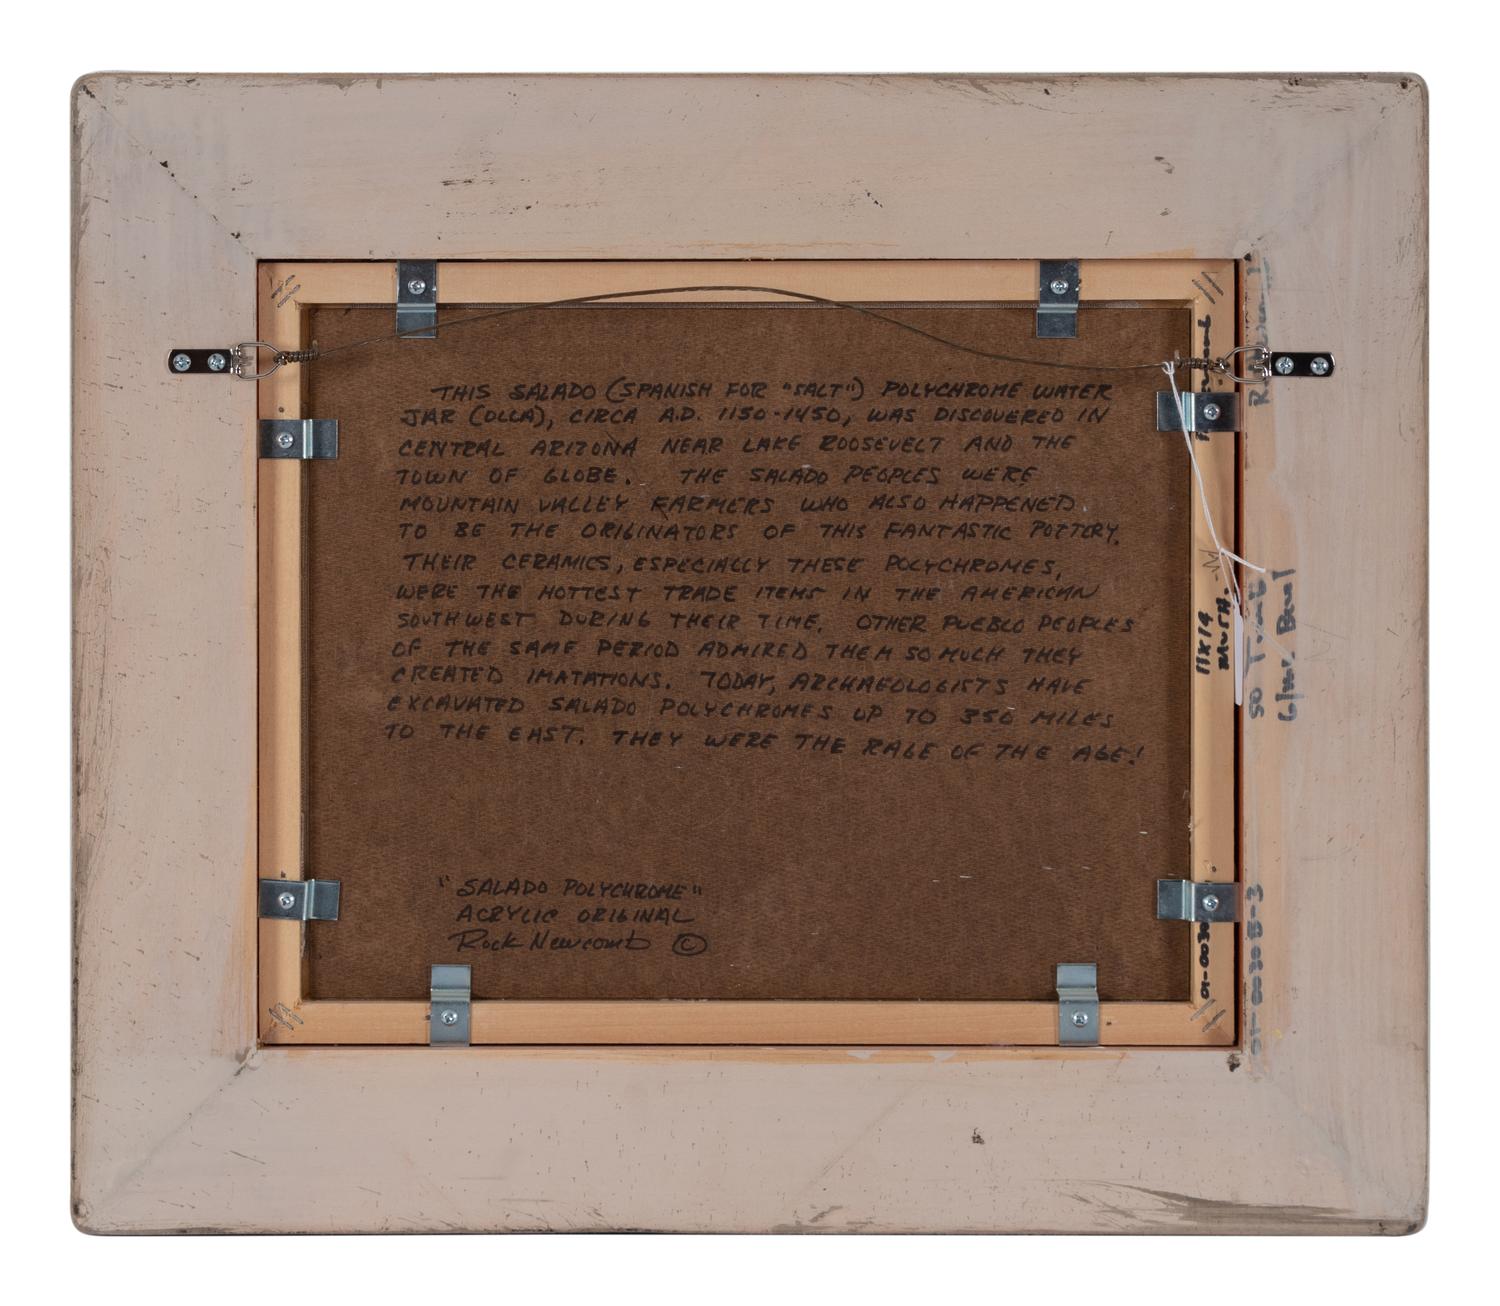 THIS SALADO (SPANISH FOR "SALT") POLYCHROME WATER
JAR (OLLA), CIRCA A.D. 1150-1450, WAS DISCOVERED IN
CENTRAL ARIZONA NEAR LAKE ROOSEVELT AND THE
TOWN OF GLOBE. THE SALADO PEOPLES WERE
MOUNTAIN VALLEY FARMERS WHO ALSO HAPPENED
TO BE THE ORIGINATORS OF THIS FANTASTIC POTTERY.
THEIR CERAMICS, ESPECIALLY THESE POLYCHROMES,
WERE THE HOTTEST TRADE ITEMS IN THE AMERICAN
SOUTHWEST DURING THEIR TIME. OTHER PUEBLO PEOPLES
OF THE SAME PERIOD ADMIRED THEM SO MUCH THEY
CREATED IMATATIONS. TODAY, ARCHAEOLOGISTS HAVE
EXCAVATED SALADO POLYCHROMES UP TO 350 MILES
TO THE EAST. THEY WERE THE RAGE OF THE AGE!
"SALADO POLYCHROME"
ACRYLIC ORIGINAL
Rock Newcomb ©
11x14
01-0030B-3